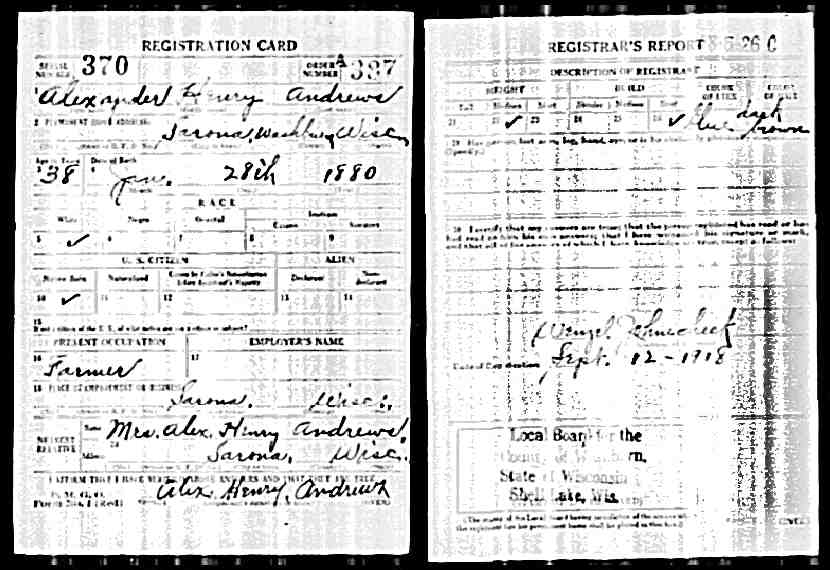 REGISTRATION CARD
SERIAL NUMBER 370
ORDER NUMBER A 337
1 Alexander Henry Andrews
2 PERMANENT HOME ADDRESS
Sarona, Washburn, Wisc.
Age in Years Date of Birth
3 38 4 Jan. 28th 1880
RACE
White Negro Oriental Indian
Citizen Noncitizen
5 ✓ 6 7 8 9
U. S. CITIZEN ALIEN
Native Born Naturalized Citizen by Father's Naturalization Before Registrant's Majority Declarant Non-declarant
10 ✓ 11 12 13 14
15
If not a citizen of the U. S., of what nation are you a citizen or subject?
PRESENT OCCUPATION EMPLOYER'S NAME
16 Farmer 17
18 PLACE OF EMPLOYMENT OR BUSINESS
Sarona, Wisc.
NEAREST RELATIVE Name Mrs. Alex. Henry Andrews,
Address Sarona, Wisc.
I AFFIRM THAT I HAVE VERIFIED ABOVE ANSWERS AND THAT THEY ARE TRUE
Alex. Henry, Andrews
REGISTRAR'S REPORT
DESCRIPTION OF REGISTRANT
HEIGHT BUILD COLOR OF EYES COLOR OF HAIR
Tall Medium Short Slender Medium Stout
21 22 ✓ 23 24 25 26 ✓ blue dark brown
29 Has person lost arm, leg, hand, eye,
(Specify.)
30 I certify that my answers are true; that the person registered has read or has had read to him his own answers; that I have witnessed his signature or mark, and that all of his answers of which I have knowledge are true, except as follows:
Wenzel
Date of Registration Sept. 12-1918
Local Board for the
County of Washburn,
State of Wisconsin
Shell Lake, Wis.